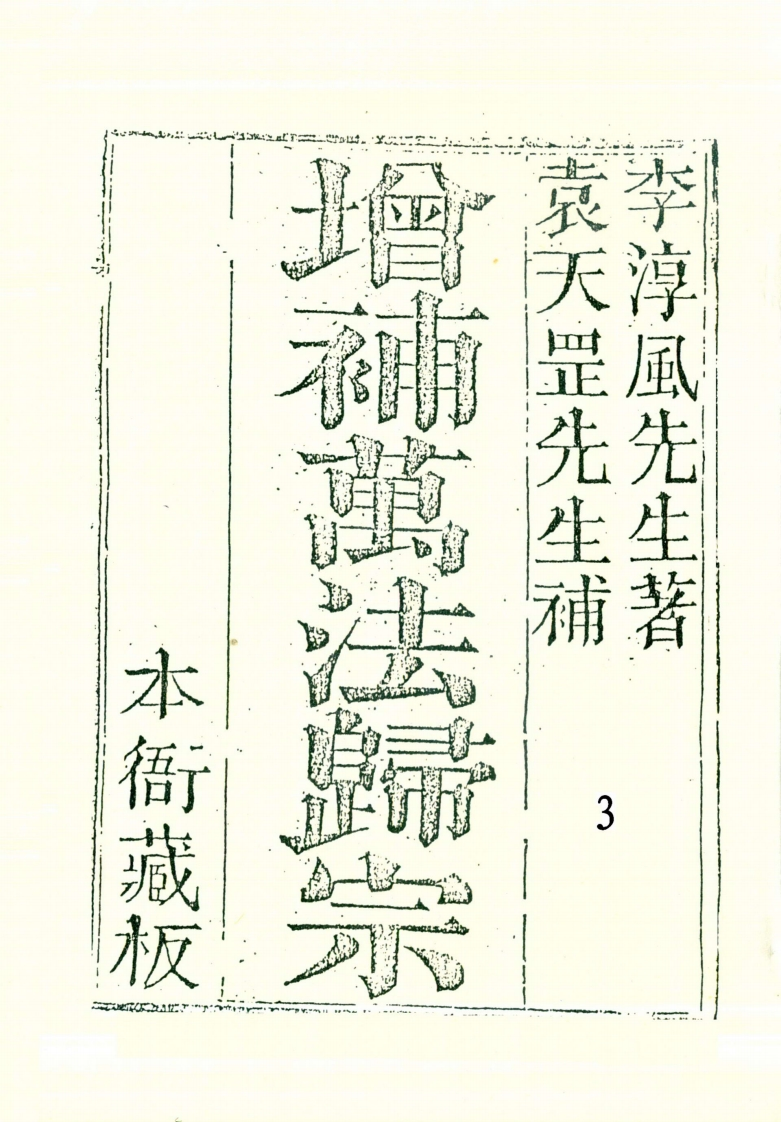 李淳風先生著
袁天罡先生補
3
增補萬法歸宗
本衙藏板